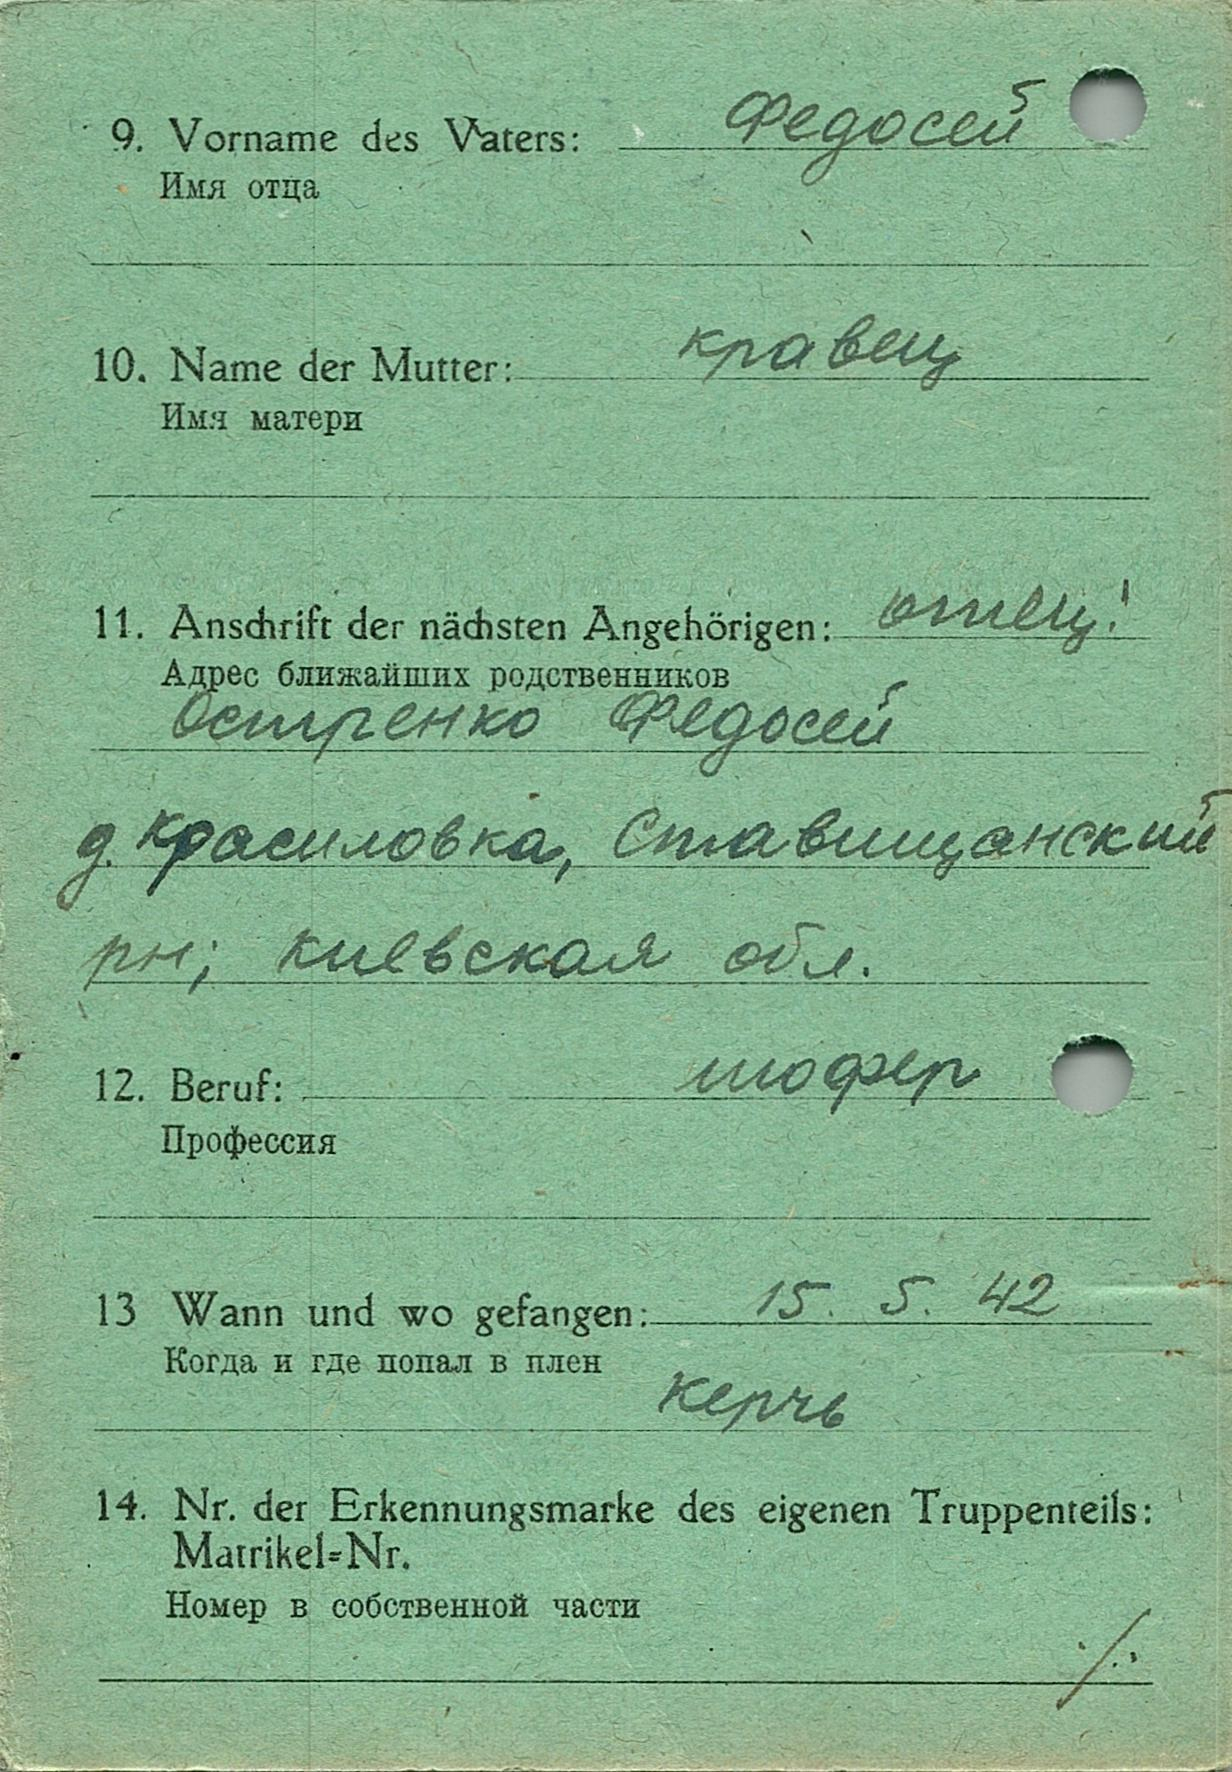 9. Vorname des Vaters: Федосей
Имя отца
10. Name der Mutter: Кравец
Имя матери
11. Anschrift der nächsten Angehörigen: отец!
Адрес ближайших родственников
Остренко Федосей
д. Красиловка, Ставищанский
рн; Киевская обл.
12. Beruf: шофер
Профессия
13 Wann und wo gefangen: 15. 5. 42
Когда и где попал в плен
Керчь
14. Nr. der Erkennungsmarke des eigenen Truppenteils:
Matrikel-Nr.
Номер в собственной части
./.